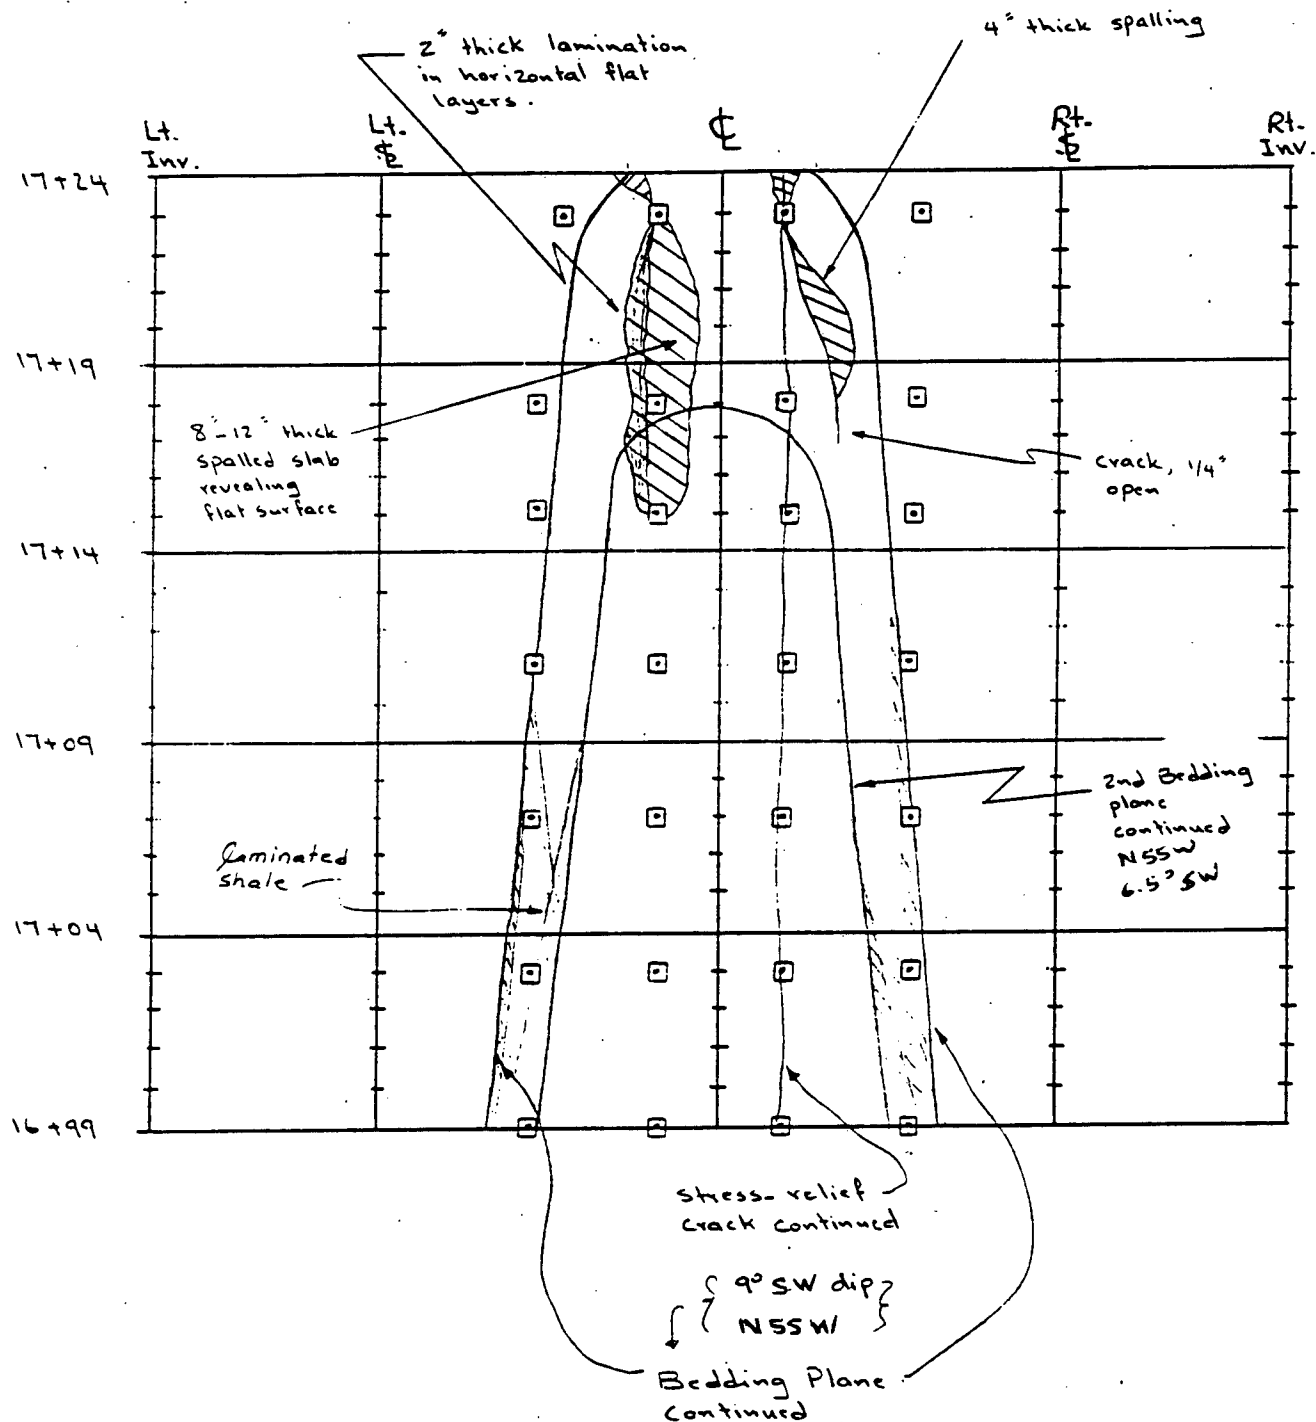 2" thick lamination
in horizontal flat
layers.
4" thick spalling
Lt.
Inv.
Lt.
℄
℄
Rt.
℄
Rt.
Inv.
17+24
17+19
8"-12" thick
spalled slab
revealing
flat surface
crack, 1/4"
open
17+14
17+09
2nd Bedding
plane
continued
N55W
6.5° SW
Laminated
shale
17+04
16+99
stress-relief
crack continued
{ 9° SW dip }
{ N55W }
Bedding Plane
Continued